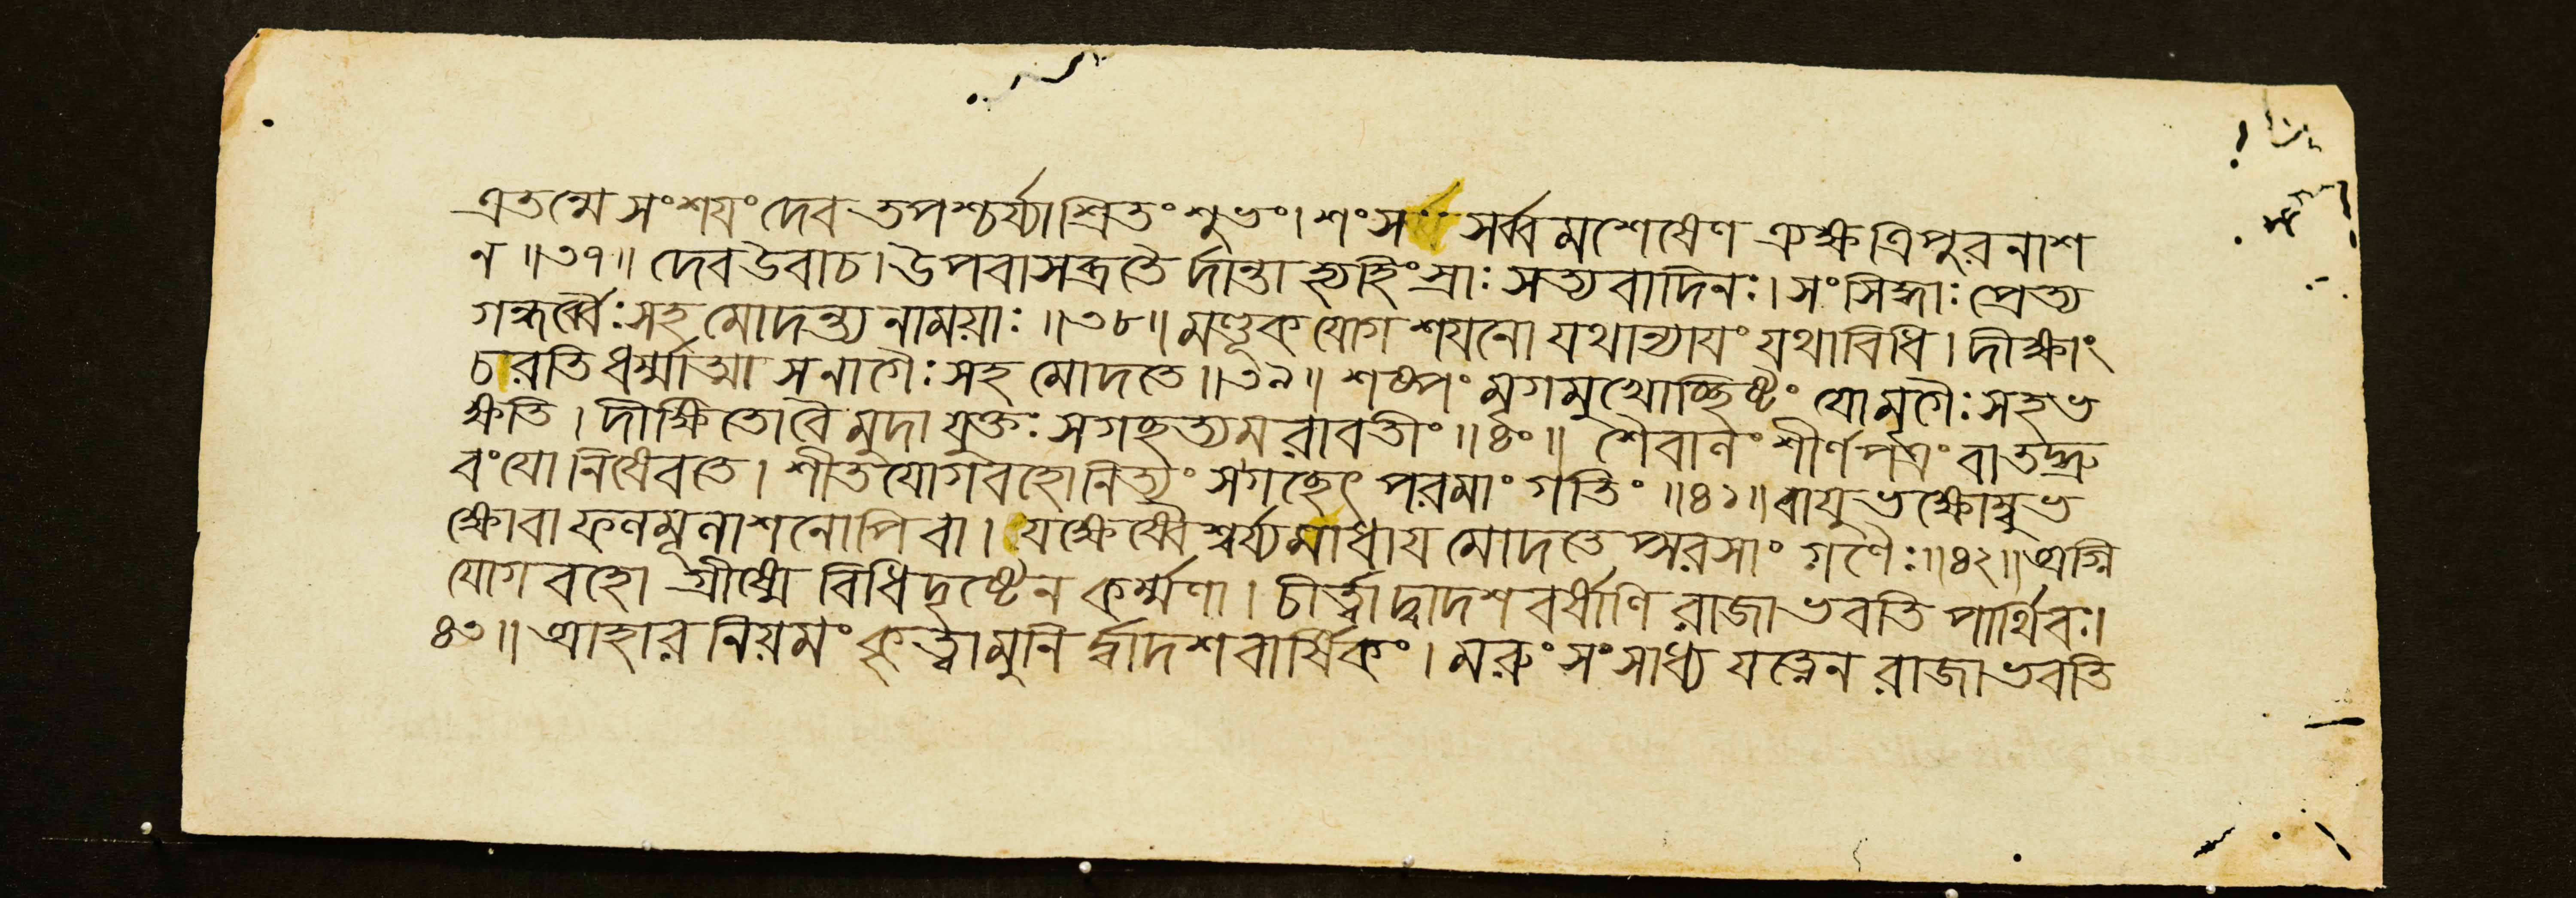 এতন্মে সংশয়ং দেব তপশ্চর্য্যাশ্রিতং শুভং। শংস সর্ব্বমশেষেণ ত্র্যক্ষ ত্রিপুরনাশ
ন॥৩৭॥ দেব উবাচ। উপবাসব্রতৈর্দান্তা হ্যহিংস্রাঃ সত্যবাদিনঃ। সংসিদ্ধাঃ প্রেত্য
গন্ধর্ব্বৈঃ সহ মোদন্ত্যনাময়াঃ॥৩৮॥ মণ্ডূকযোগশয়নো যথান্যায়ং যথাবিধি। দীক্ষাং
চরতি ধর্ম্মাত্মা স নাগৈঃ সহ মোদতে॥৩৯॥ শষ্পং মৃগমুখোচ্ছিষ্টং যো মৃগৈঃ সহ ভ
ক্ষতি। দীক্ষিতো বৈ মুদা যুক্তঃ স গচ্ছত্যমরাবতীং॥৪০॥ শৈবালং শীর্ণপর্ত্রং বা তদ্ব্র
বং যো নিষেবতে। শীতযোগবহো নিত্যং স গচ্ছেৎ পরমাং গতিং॥৪১॥ বায়ুভক্ষোম্বুভ
ক্ষো বা ফলমূলাশনোপি বা। যক্ষেষ্বৈশ্বর্য্যমাধায় মোদতেপ্সরসাং গণৈঃ॥৪২॥ অগ্নি
যোগবহো গ্রীষ্মে বিধিদৃষ্টেন কর্ম্মণা। চীর্ত্ত্বা দ্বাদশবর্ষাণি রাজা ভবতি পার্থিবঃ।
৪৩॥ আহারনিয়মং কৃত্বা মুনির্দ্বাদশবার্ষিকং। মরুং সংসাধ্য যত্নেন রাজা ভবতি